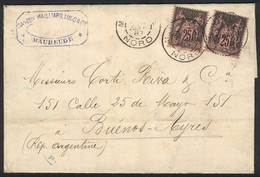 MAUBEUGE
NORD
25
25
NORD
Messieurs Corti Riva & Cª
151 Calle 25 de Mayo 151
Buenos-Ayres
(Rép. Argentine)